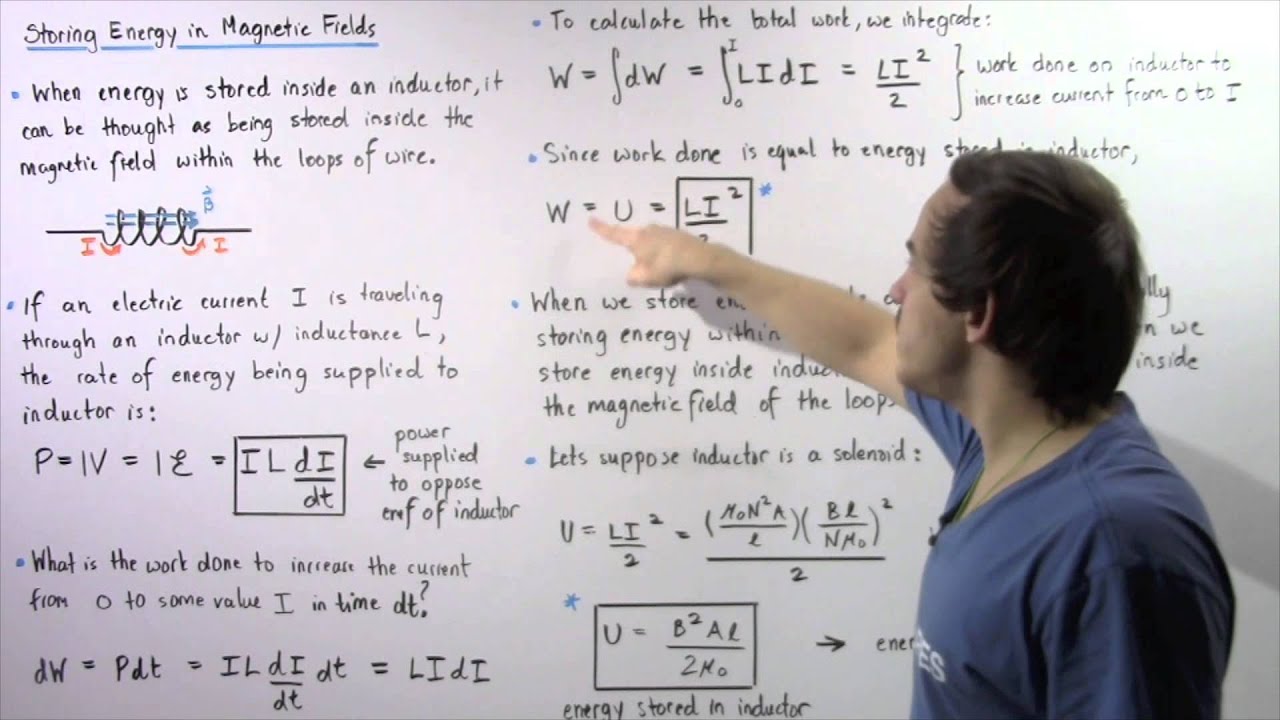 Storing Energy in Magnetic Fields
• When energy is stored inside an inductor, it
can be thought as being stored inside the
magnetic field within the loops of wire.
B⃗
I I
• If an electric current I is traveling
through an inductor w/ inductance L,
the rate of energy being supplied to
inductor is:
P = IV = Iℰ = IL dI/dt ← power
supplied
to oppose
emf of inductor
• What is the work done to increase the current
from 0 to some value I in time dt?
dW = Pdt = IL dI/dt dt = LIdI
• To calculate the total work, we integrate:
W = ∫dW = ∫₀ᴵ LIdI = LI²/2 } work done on inductor to
increase current from 0 to I
• Since work done is equal to energy stored in inductor,
W = U = LI²/2 *
• When we store
storing energy within we
store energy inside inside
the magnetic field of the loops
• Lets suppose inductor is a solenoid:
U = LI²/2 = (μ₀N²A/l)(Bl/Nμ₀)²/2
* U = B²Al/2μ₀ →
energy stored in inductor
ES